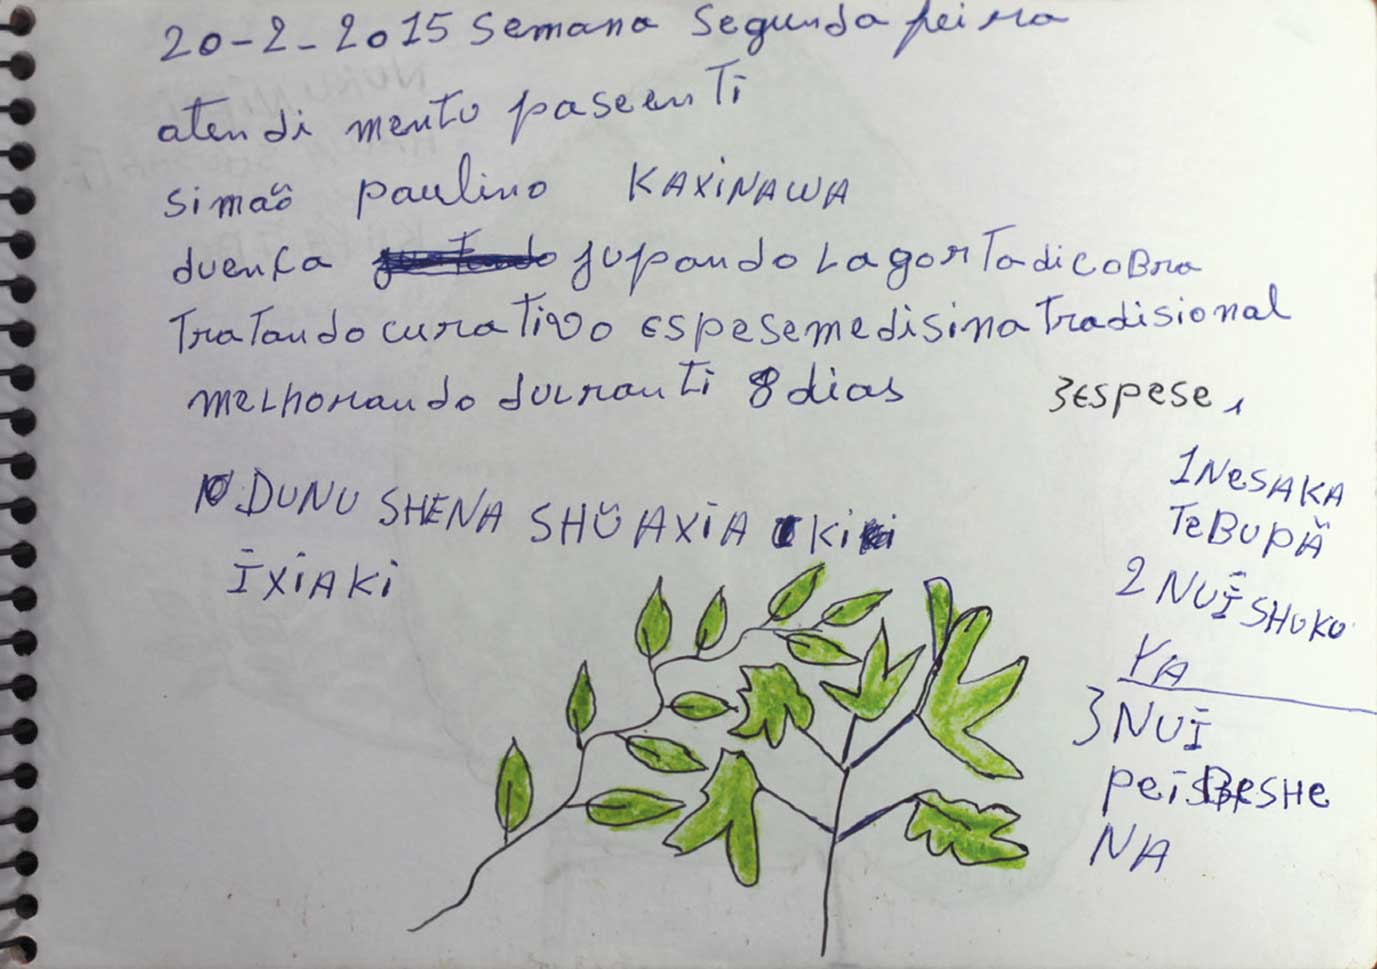 20-2-2015 Semana Segunda feira
atendi mento paseenti
simão paulino KAXINAWA
duença jupando Lagortadicobra
Tratando curativo espesemedisina Tradisional
melhorando durranti 8 dias
3 Espese
DUNU SHENA SHŨ AXIA KI
ĨXIAKI
1 NESAKA
TEBUPÃ
2 NUĨ SHUKU
YA
3 NUĨ
PEI BESHE
NA